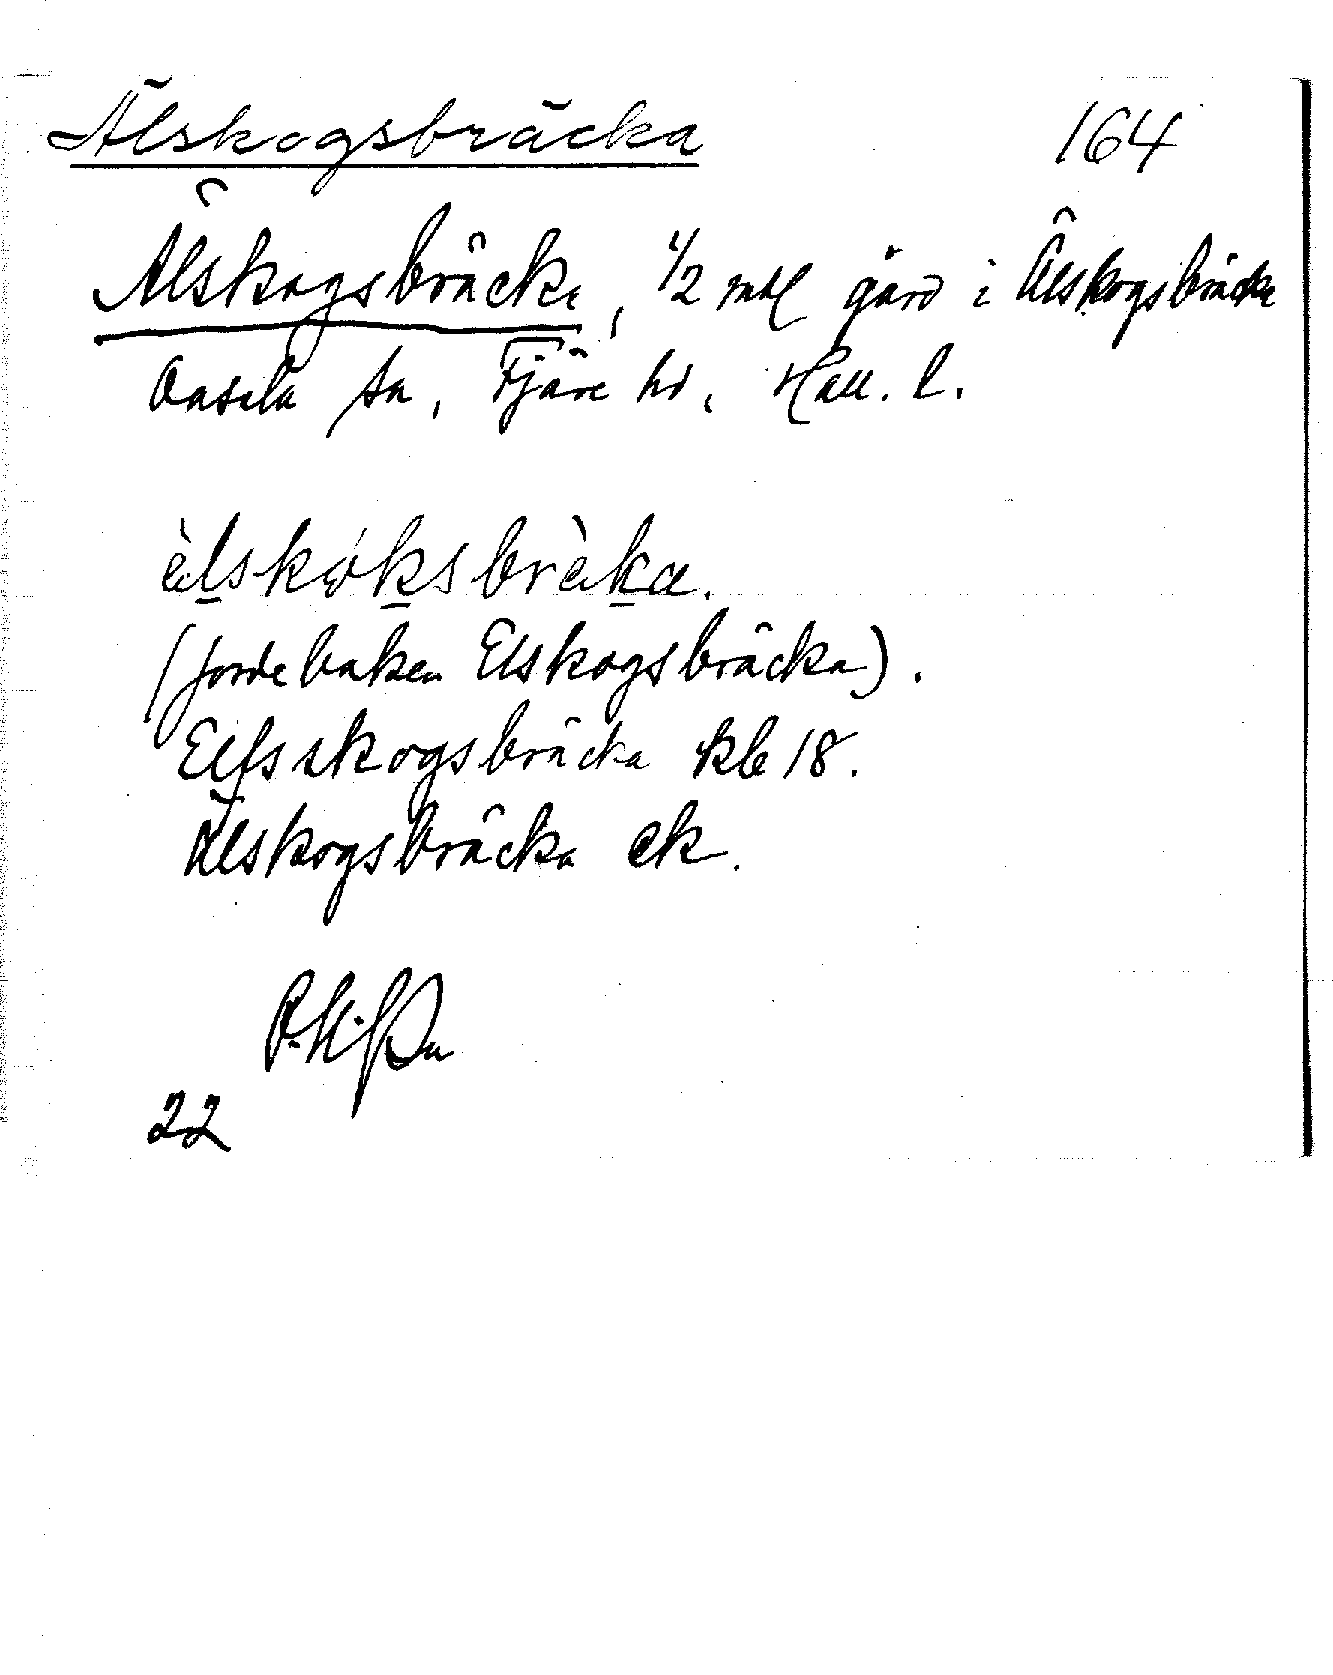 Älskogsbräcka 164
Älskogsbräcka, 1/2 mtl gård i Älskogsbräcka
Onsala sn, Fjäre hd, Hall. l.
èlskoksbrèka.
(Jordeboken Elskogsbräcka).
Elfsskogsbräcka kb 18.
Älskogsbräcka ek.
22